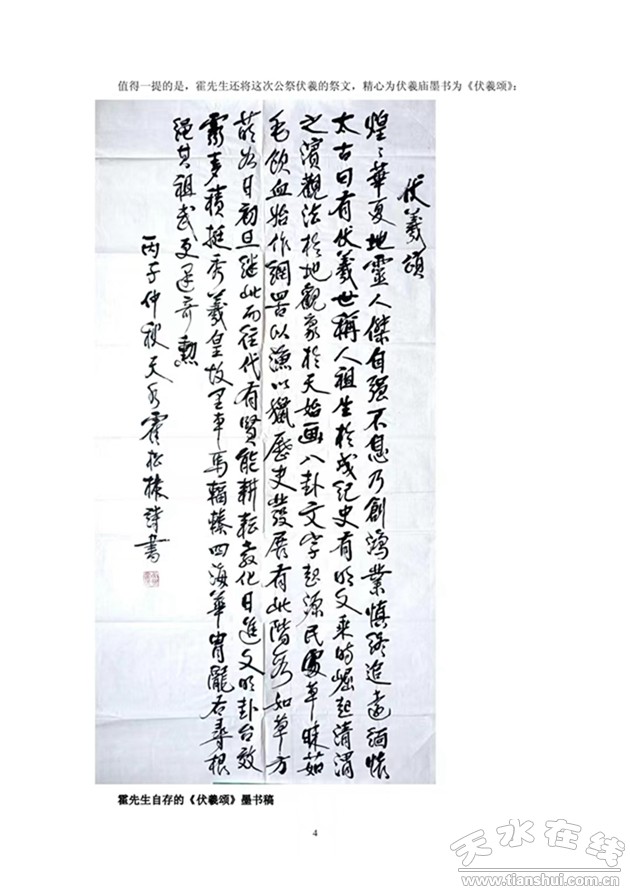 值得一提的是，霍先生还将这次公祭伏羲的祭文，精心为伏羲庙墨书为《伏羲颂》：
伏羲頌
煌〻華夏地靈人傑自强不息乃創鴻業慎終追遠緬懷
太古曰有伏羲世稱人祖生於成紀史有明文乘時崛起清渭
之濱觀法於地觀象於天始画八卦文字起源民處草昧茹
毛飲血始作網罟以漁以獵歷史發展有此階段如草方
萌如日初旦继此而往代有賢能耕耘教化日進文明卦台效
靈麥積挺秀羲皇故里車馬輻輳四海華胄隴右尋根
繩其祖武更建奇勲
丙子仲秋天水霍松林詩書
霍先生自存的《伏羲颂》墨书稿
4
天水在线
www.tianshui.com.cn